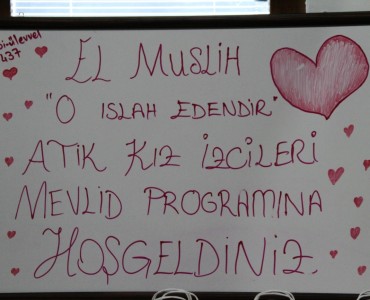 437
EL MUSLİH
"O ISLAH EDENDİR"
ATİK KIZ İZCİLERİ
MEVLİD PROGRAMINA
HOŞGELDİNİZ.